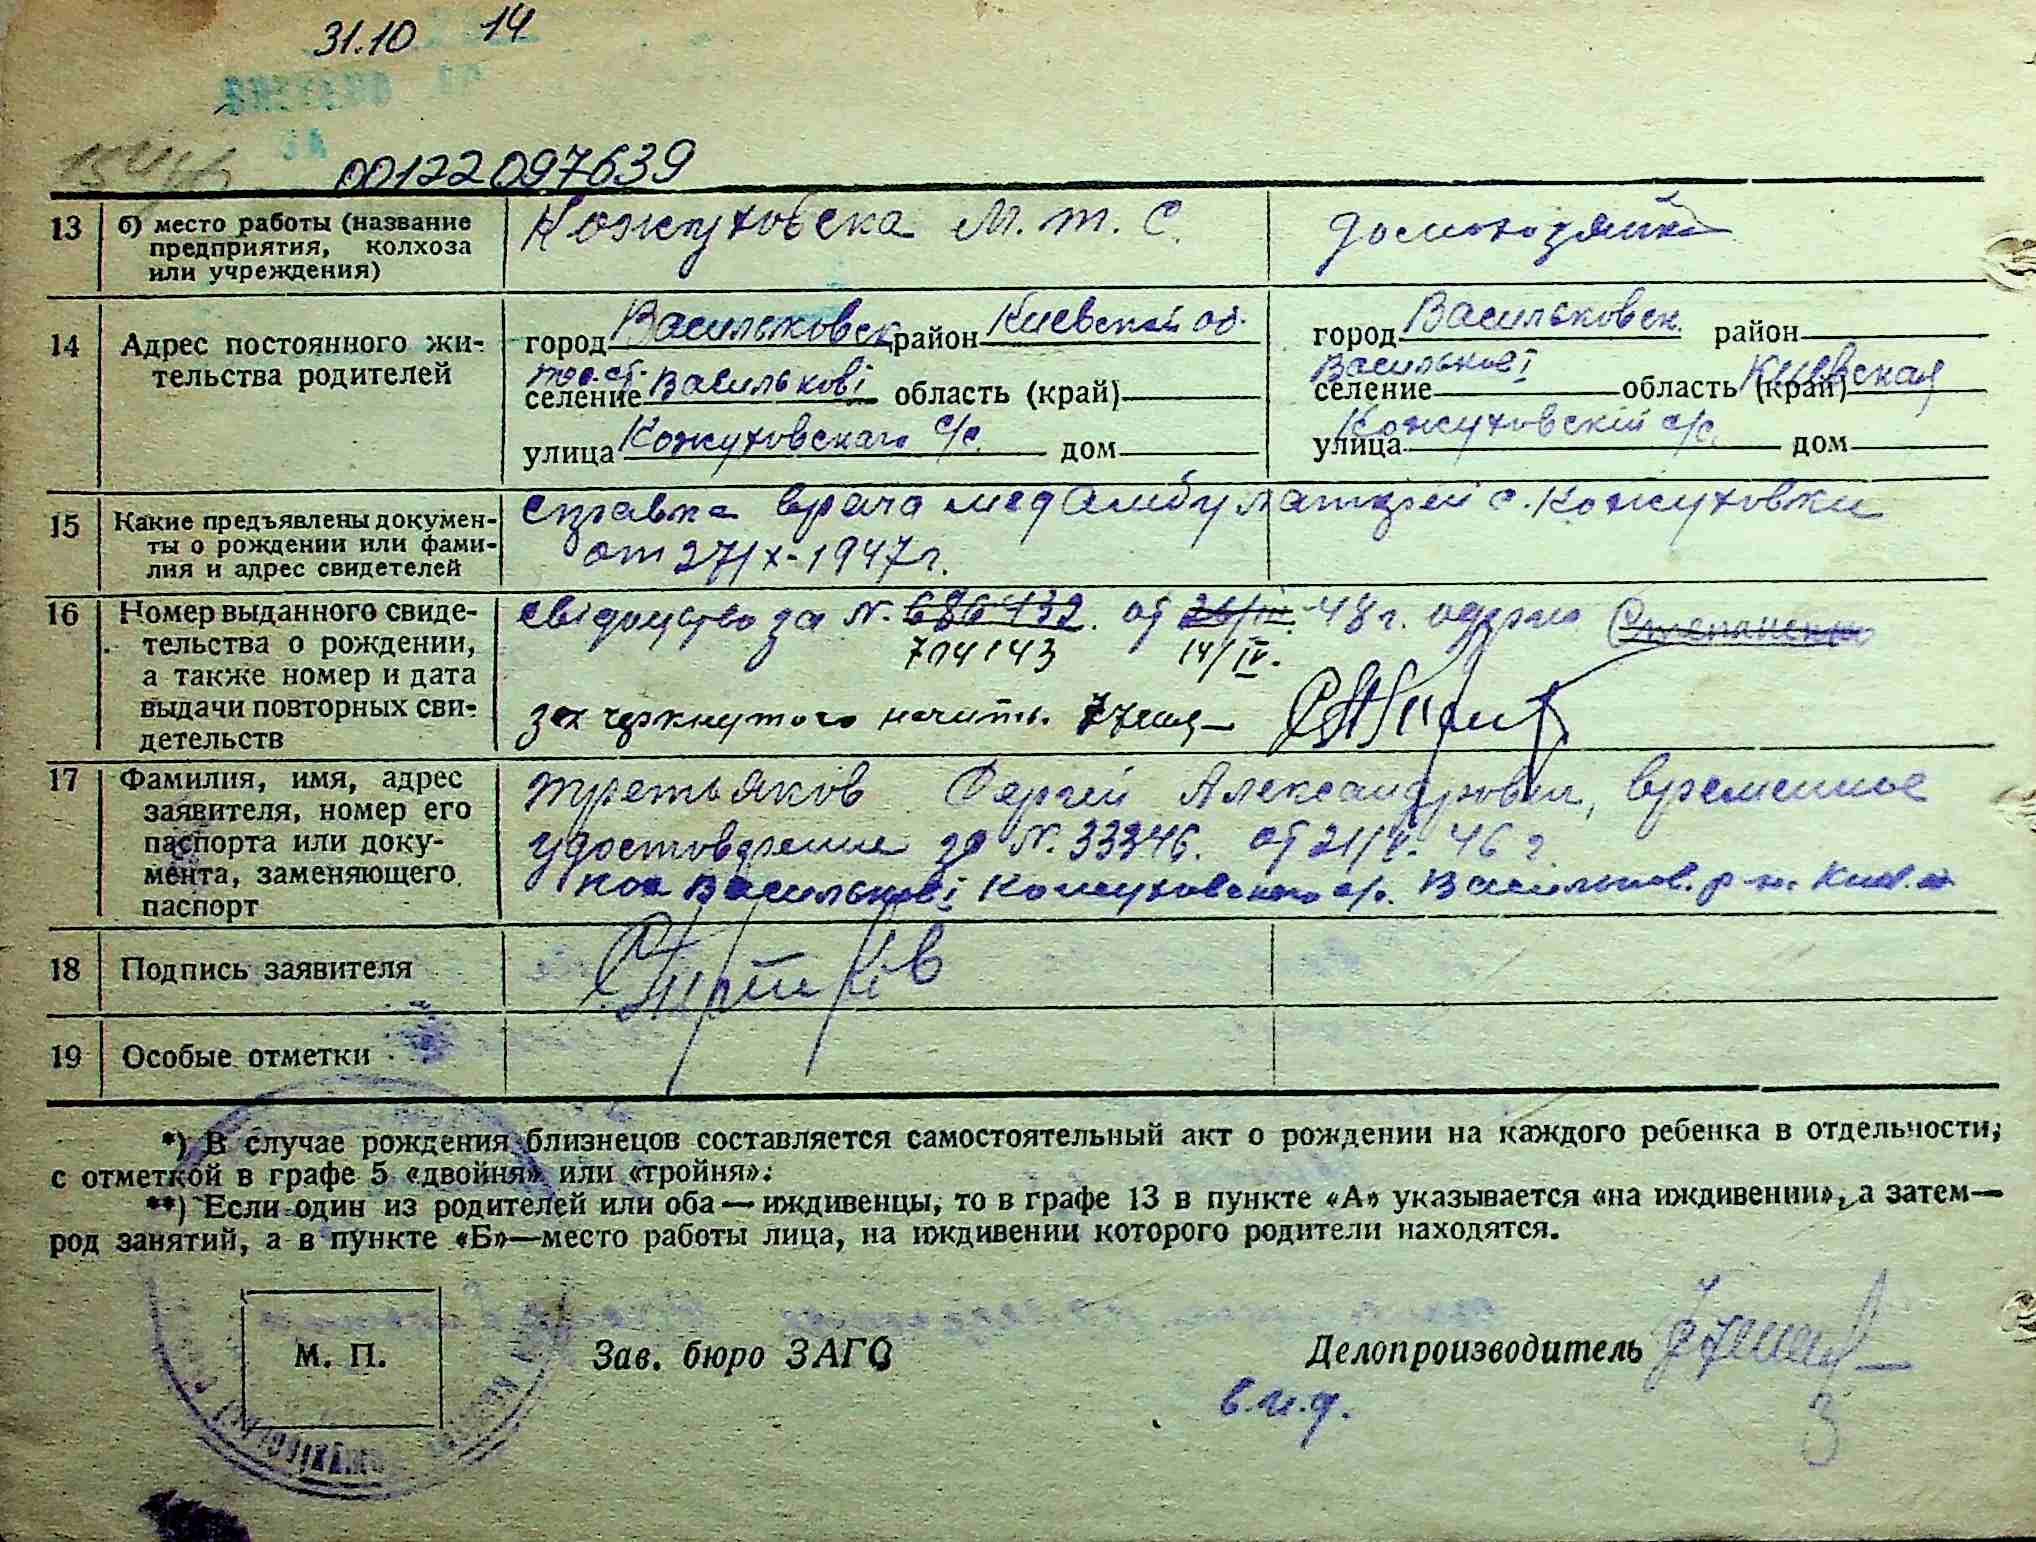 31.10 14
00122097639
13 б) место работы (название предприятия, колхоза или учреждения) Кожуховска М.т.С. домохозяйка
14 Адрес постоянного жительства родителей
город Васильковск район Киевской об. город Васильковск. район
селение пос.ст. Васильков I область (край) селение Васильков I область (край) Киевская
улица Кожуховского с/с. дом улица Кожуховский с/с. дом
15 Какие предъявлены документы о рождении или фамилия и адрес свидетелей
справка врача медамбулаторией с. Кожуховки
от 27/X-1947г.
16 Номер выданного свидетельства о рождении, а также номер и дата выдачи повторных свидетельств
свідоцтво за N. 686432. от 26/III. 48 г. Степаненко
704143 14/IV.
зачеркнутого
17 Фамилия, имя, адрес заявителя, номер его паспорта или документа, заменяющего паспорт
Третьяков Сергей Александрович, временное
удостоверение за N. 33346. от 21/V. 46 г.
Васильков I Кожуховского с/с. Васильков. р-н. Киев.
18 Подпись заявителя
19 Особые отметки
*) В случае рождения близнецов составляется самостоятельный акт о рождении на каждого ребенка в отдельности,
с отметкой в графе 5 «двойня» или «тройня».
**) Если один из родителей или оба — иждивенцы, то в графе 13 в пункте «А» указывается «на иждивении», а затем—
род занятий, а в пункте «Б»—место работы лица, на иждивении которого родители находятся.
М. П. Зав. бюро ЗАГС Делопроизводитель
в.и.д.